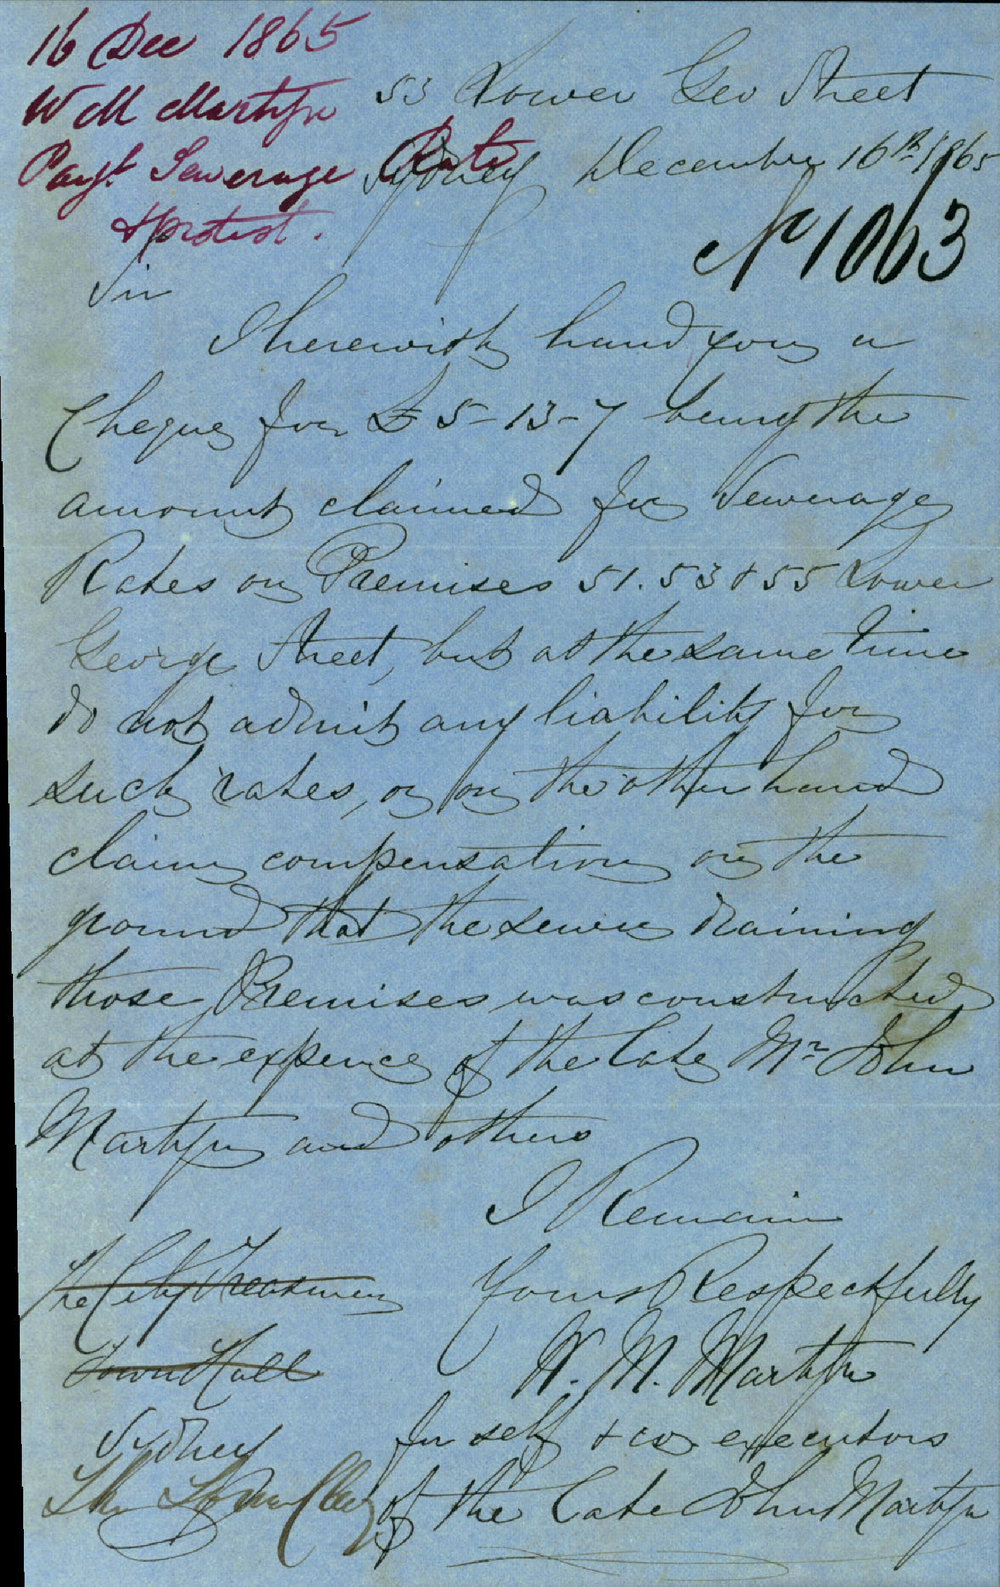 16 Dec 1865
W M Martyn
Payt. Sewerage Rate
& protest.
53 Lower Geo Street
Sydney December 16th 1865
No 1063
Sir
I herewith hand you a
Cheque for £5-13-7 being the
amount claimed for Sewerage
Rates on Premises 51. 53 & 55 Lower
George Street, but at the same time
do not admit any liability for
such rates, or on the other hand
claim compensation on the
ground that the sewer draining
those Premises was constructed
at the expence of the late Mr John
Martyn and others
I Remain
Yours Respectfully
W. M. Martyn
for self & co executors
of the late John Martyn
The City Treasurer
Town Hall
Sydney
The Town Clerk